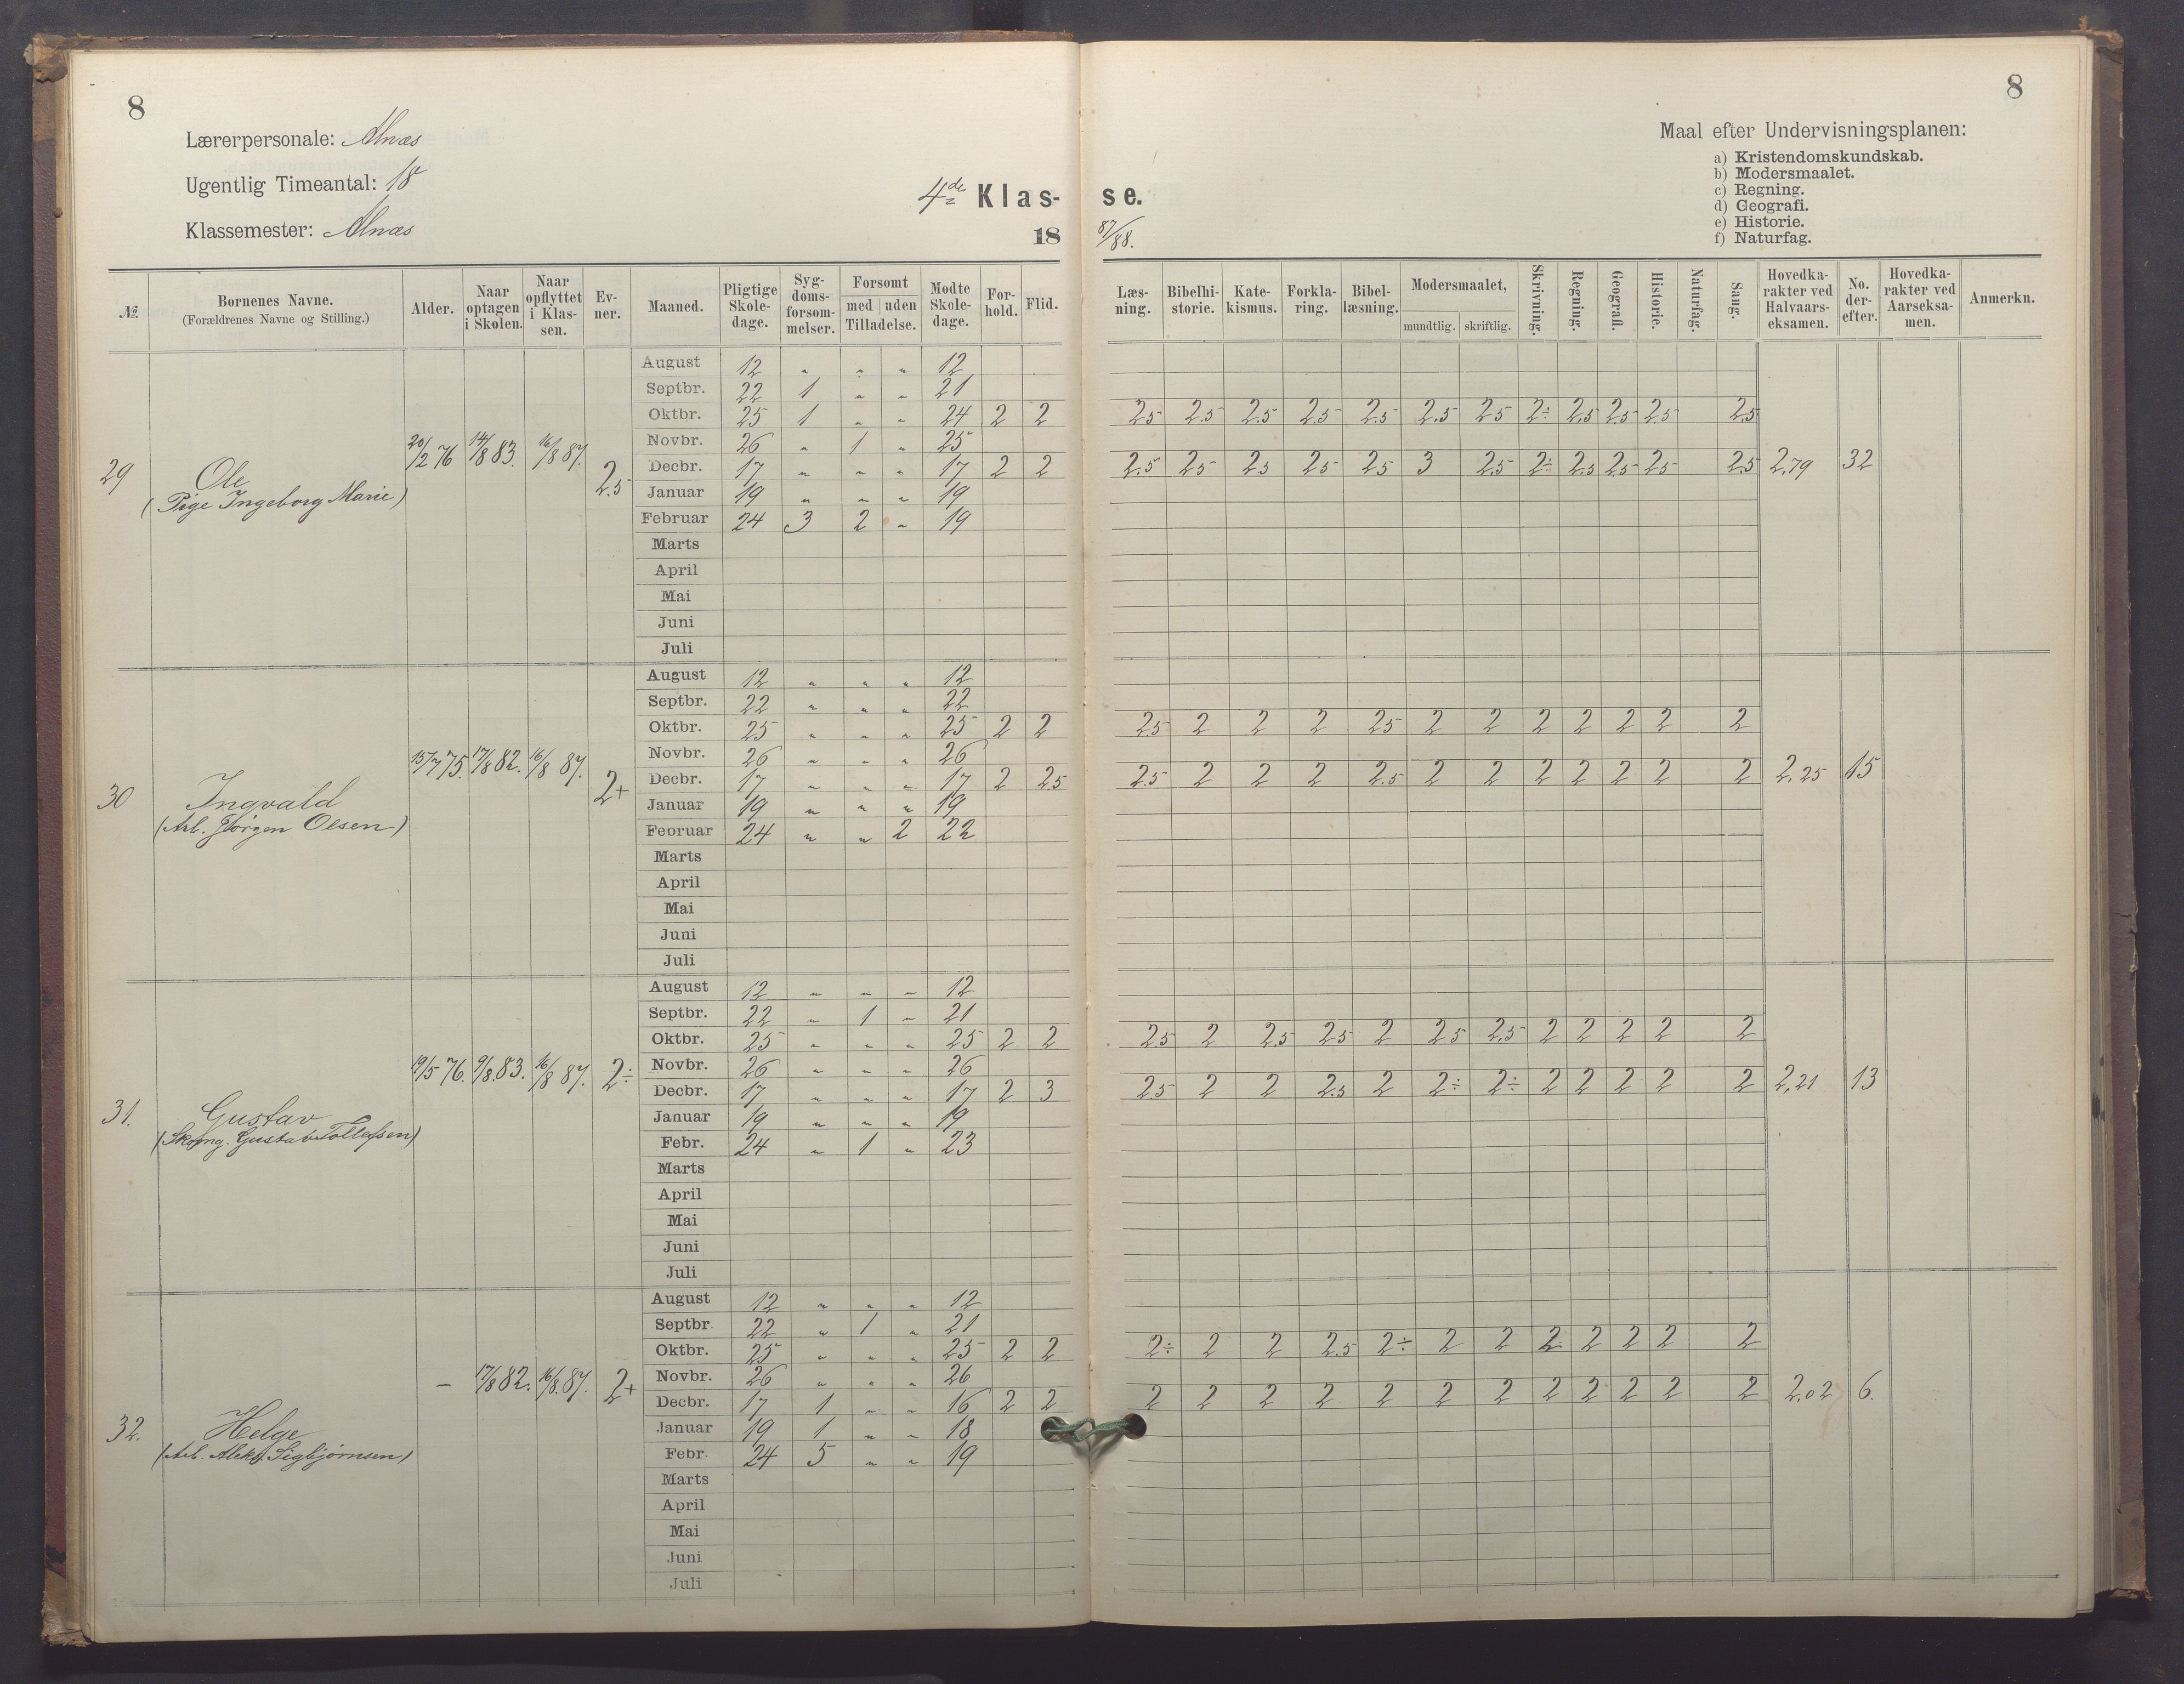 8
8
Lærerpersonale: Alnæs
Ugentlig Timeantal: 18
Klassemester: Alnæs
4de Klas- se.
18 87/88.
Maal efter Undervisningsplanen:
a) Kristendomskundskab.
b) Modersmaalet.
c) Regning.
d) Geografi.
e) Historie.
f) Naturfag.
№ | Børnenes Navne. (Forældrenes Navne og Stilling.) | Alder. | Naar optagen i Skolen. | Naar opflyttet i Klassen. | Evner. | Maaned. | Pligtige Skoledage. | Sygdomsforsømmelser. | Forsømt med uden Tilladelse. | Mødte Skoledage. | Forhold. | Flid. | Læsning. | Bibelhistorie. | Katekismus. | Forklaring. | Bibellæsning. | Modersmaalet, mundtlig. skriftlig. | Skrivning. | Regning. | Geografi. | Historie. | Naturfag. | Sang. | Hovedkarakter ved Halvaarseksamen. | No. derefter. | Hovedkarakter ved Aarseksamen. | Anmerkn.
29 Ole (Pige Ingeborg Marie) 20/2 76 14/8 83. 16/8 87. 2.5
August 12 " " " 12
Septbr. 22 1 " " 21
Oktbr. 25 1 " " 24 2 2 2.5 2.5 2.5 2.5 2.5 2.5 2.5 2÷ 2.5 2.5 2.5 2.5
Novbr. 26 " 1 " 25
Decbr. 17 " " " 17 2 2 2.5 2.5 2.5 2.5 2.5 3 2.5 2÷ 2.5 2.5 2.5 2.5 2,79 32
Januar 19 " " " 19
Februar 24 3 2 " 19
Marts
April
Mai
Juni
Juli
30 Ingvald (Arb. Jørgen Olsen) 15/7 75. 17/8 82. 16/8 87. 2+
August 12 " " " 12
Septbr. 22 " " " 22
Oktbr. 25 " " " 25 2 2 2.5 2 2 2 2.5 2 2 2 2 2 2 2
Novbr. 26 " " " 26
Decbr. 17 " " " 17 2 2.5 2.5 2 2 2 2.5 2 2 2 2 2 2 2 2,25 15
Januar 19 " " " 19
Februar 24 " " 2 22
Marts
April
Mai
Juni
Juli
31. Gustav (Skomg. Gustav Tollefsen) 19/5 76. 9/8 83. 16/8 87. 2÷
August 12 " " " 12
Septbr. 22 " 1 " 21
Oktbr. 25 " " " 25 2 2 2.5 2 2.5 2.5 2 2.5 2.5 2 2 2 2 2
Novbr. 26 " " " 26
Decbr. 17 " " " 17 2 3 2.5 2 2 2.5 2 2÷ 2÷ 2 2 2 2 2 2,21 13
Januar 19 " " " 19
Febr. 24 " 1 " 23
Marts
April
Mai
Juni
Juli
32. Helge (Arb. Aleks. Sigbjørnsen) – 17/8 82. 16/8 87. 2+
August 12 " " " 12
Septbr. 22 " 1 " 21
Oktbr. 25 " " " 25 2 2 2÷ 2 2 2.5 2÷ 2 2 2 2 2 2 2
Novbr. 26 " " " 26
Decbr. 17 1 " " 16 2 2 2 2 2 2 2 2 2 2 2 2 2 2 2,02 6.
Januar 19 1 " " 18
Febr. 24 5 " " 19
Marts
April
Mai
Juni
Juli